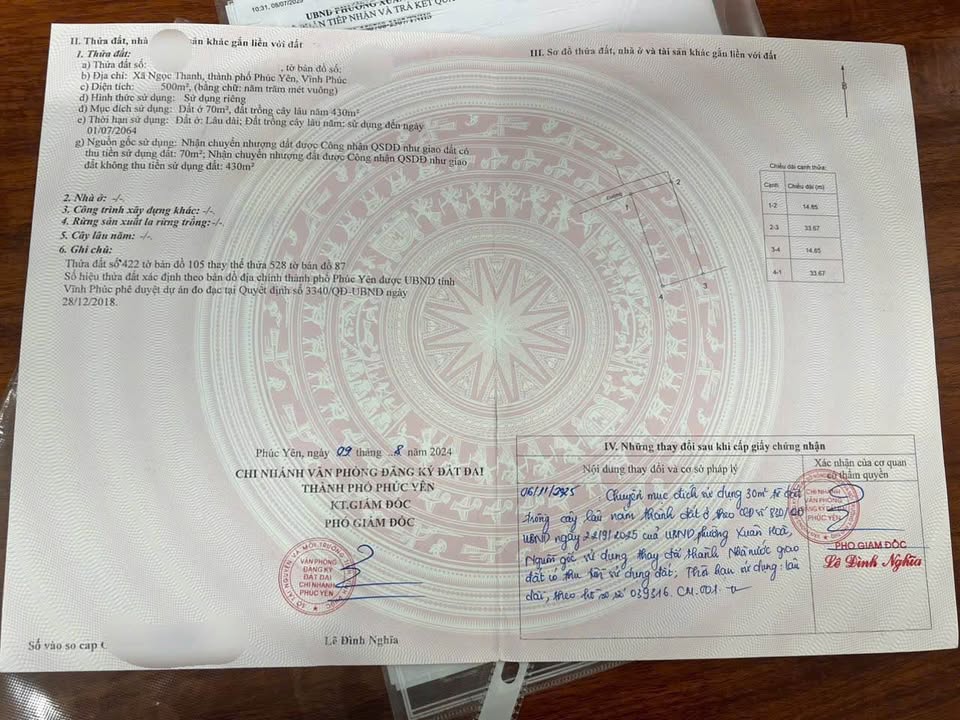 10:31, 08/07/2025
UBND PHƯỜNG XUÂN
TIẾP NHẬN VÀ TRẢ KẾT QU
II. Thửa đất, nhà sản khác gắn liền với đất
1. Thửa đất:
a) Thửa đất số: , tờ bản đồ số:
b) Địa chỉ: Xã Ngọc Thanh, thành phố Phúc Yên, Vĩnh Phúc
c) Diện tích: 500m², (bằng chữ: năm trăm mét vuông)
d) Hình thức sử dụng: Sử dụng riêng
đ) Mục đích sử dụng: Đất ở 70m², đất trồng cây lâu năm 430m²
e) Thời hạn sử dụng: Đất ở: Lâu dài; Đất trồng cây lâu năm: sử dụng đến ngày
01/07/2064
g) Nguồn gốc sử dụng: Nhận chuyển nhượng đất được Công nhận QSDĐ như giao đất có
thu tiền sử dụng đất: 70m²; Nhận chuyển nhượng đất được Công nhận QSDĐ như giao
đất không thu tiền sử dụng đất: 430m²
2. Nhà ở: -/-
3. Công trình xây dựng khác: -/-
4. Rừng sản xuất là rừng trồng:-/-
5. Cây lâu năm: -/-
6. Ghi chú:
Thửa đất số 422 tờ bản đồ 105 thay thế thửa 528 tờ bản đồ 87
Số hiệu thửa đất xác định theo bản đồ địa chính thành phố Phúc Yên được UBND tỉnh
Vĩnh Phúc phê duyệt dự án đo đạc tại Quyết định số 3340/QĐ-UBND ngày
28/12/2018.
Phúc Yên, ngày 09 tháng 8 năm 2024
CHI NHÁNH VĂN PHÒNG ĐĂNG KÝ ĐẤT ĐAI
THÀNH PHỐ PHÚC YÊN
KT.GIÁM ĐỐC
PHÓ GIÁM ĐỐC
VĂN PHÒNG
ĐĂNG KÝ
ĐẤT ĐAI
CHI NHÁNH
PHÚC YÊN
Lê Đình Nghĩa
Số vào sổ cấp
III. Sơ đồ thửa đất, nhà ở và tài sản khác gắn liền với đất
B
1
2
3
4
Chiều dài cạnh thửa:
Cạnh Chiều dài (m)
1-2 14.85
2-3 33.67
3-4 14.85
4-1 33.67
IV. Những thay đổi sau khi cấp giấy chứng nhận
Nội dung thay đổi và cơ sở pháp lý
Xác nhận của cơ quan
có thẩm quyền
06/11/2025 Chuyển mục đích sử dụng 30m² từ đất
trồng cây lâu năm thành đất ở theo QĐ số 820/QĐ
UBND ngày 22/9/2025 của UBND phường Xuân Hoà,
Nguồn gốc sử dụng thay đổi thành Nhà nước giao
đất có thu tiền sử dụng đất; Thời hạn sử dụng: lâu
dài, theo hồ sơ số 039316. CM.001.
CHI NHÁNH
VĂN PHÒNG
ĐĂNG KÝ ĐẤT ĐAI
PHÚC YÊN
PHÓ GIÁM ĐỐC
Lê Đình Nghĩa